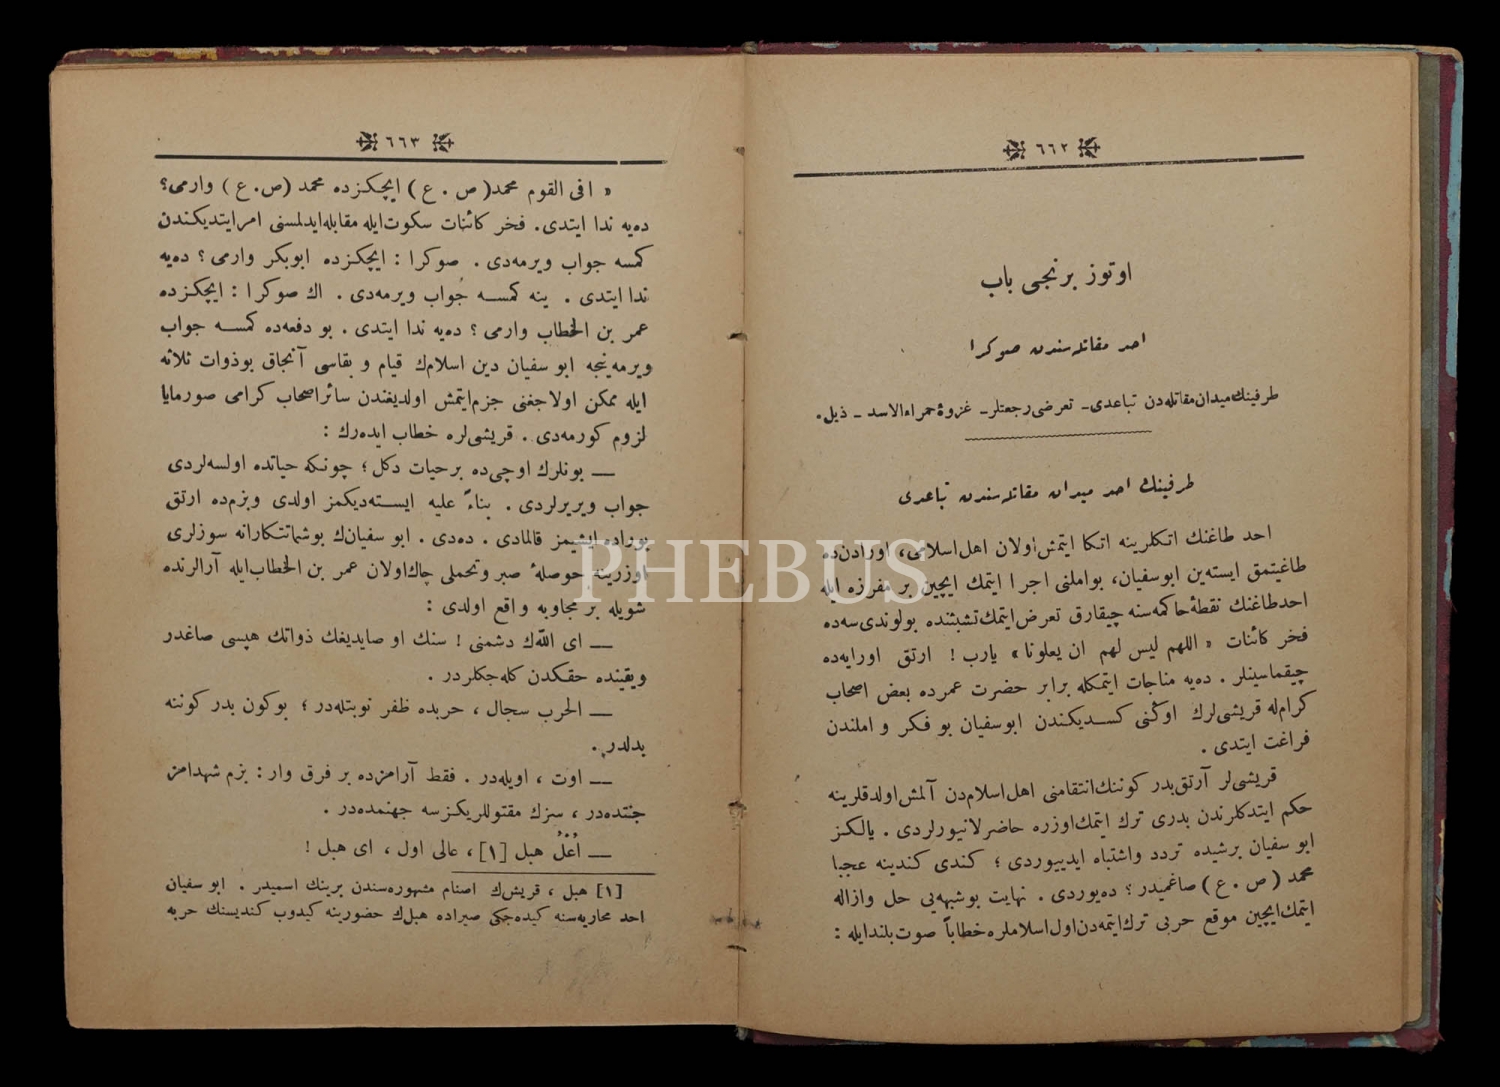 ٦٦٢
اوتوز برنجی باب
احد مقاتله‌سندن صوكرا
طرفينك ميدان مقاتله‌دن تباعدی ـ تعرضی رجعتلر ـ غزوهٔ حمراءالاسد ـ ذيل.
طرفينك احد ميدان مقاتله‌سندن تباعدی
احد طاغنك اتكلرينه اتكا ايتمش اولان اهل اسلامی، اورادن ده
طاغيتمق ايسته‌ين ابوسفيان، بو املنی اجرا ايتمك ايچين بر مفرزه ايله
احد طاغنك نقطهٔ حاكمه‌سنه چيقارق تعرض ايتمك تشبثنده بولوندی سه‌ده
فخر كائنات « اللهم ليس لهم ان يعلونا » يارب ! ارتق اورايه‌ده
چيقماسينلر . ديه مناجات ايتمكله برابر حضرت عمرده بعض اصحاب
كرام‌له قريشی‌لرك اوكنی كسديكندن ابوسفيان بو فكر و املندن
فراغت ايتدی .
قريشی‌لر آرتق بدر كوننك انتقامنی اهل اسلام‌دن آلمش اولدقلرينه
حكم ايتدكلرندن بدری ترك ايتمك اوزره حاضرلانيورلردی . يالكز
ابو سفيان برشيده تردد واشتباه ايدييوردی ؛ كندی كندينه عجبا
محمد ( ص . ع ) صاغميدر ؟ ده‌يوردی . نهايت بو شبهه‌يی حل وازاله
ايتمك ايچين موقع حربی ترك ايتمه‌دن اول اسلاملره خطاباً صوت بلند ايله :
٦٦٣
« افی القوم محمد ( ص . ع ) ايچكزده محمد (ص. ع ) وارمی؟
ده‌يه ندا ايتدی. فخر كائنات سكوت ايله مقابله ايدلمسنی امر ايتديكندن
كمسه جواب ويرمه‌دی . صوكرا : ايچكزده ابوبكر وارمی ؟ ده‌يه
ندا ايتدی . ينه كمسه جواب ويرمه‌دی . اك صوكرا : ايچكزده
عمر بن الخطاب وارمی ؟ ده‌يه ندا ايتدی . بو دفعه‌ده كمسه جواب
ويرمه‌ينجه ابو سفيان دين اسلامك قيام و بقاسی آنجاق بو ذوات ثلاثه
ايله ممكن اولاجغنی جزم ايتمش اولديغندن سائر اصحاب كرامی صورمايا
لزوم كورمه‌دی . قريشی‌لره خطاب ايده‌رك :
— بونلرك اوچی‌ده برحيات دكل ؛ چونكه حياتده اولسه‌لردی
جواب ويريرلردی . بناءً عليه ايسته‌ديكمز اولدی وبزم‌ده ارتق
بوراده ايشيمز قالمادی . ده‌دی . ابو سفيانك بو شماتتكارانه سوزلری
اوزرينه حوصلهٔ صبر وتحملی چاك اولان عمر بن الخطاب ايله آرالرنده
شويله بر مجاوبه واقع اولدی :
— ای اللّٰهك دشمنی ! سنك او صايديغك ذواتك هپسی صاغدر
ويقينده حقكدن كله‌جكلردر .
— الحرب سجال ، حربده ظفر نوبتله‌در ؛ بوكون بدر كوننه
بدلدر .
— اوت ، اويله‌در . فقط آرامزده بر فرق وار : بزم شهدامز
جنتده‌در ، سزك مقتوللريكزسه جهنمده‌در .
— اُعْلُ هبل [١] ، عالی اول ، ای هبل !
[١] هبل ، قريشك اصنام مشهوره‌سندن برينك اسميدر . ابو سفيان
احد محاربه‌سنه كيده‌جكی صيراده هبلك حضورينه كيدوب كنديسنك حربه
PHEBUS